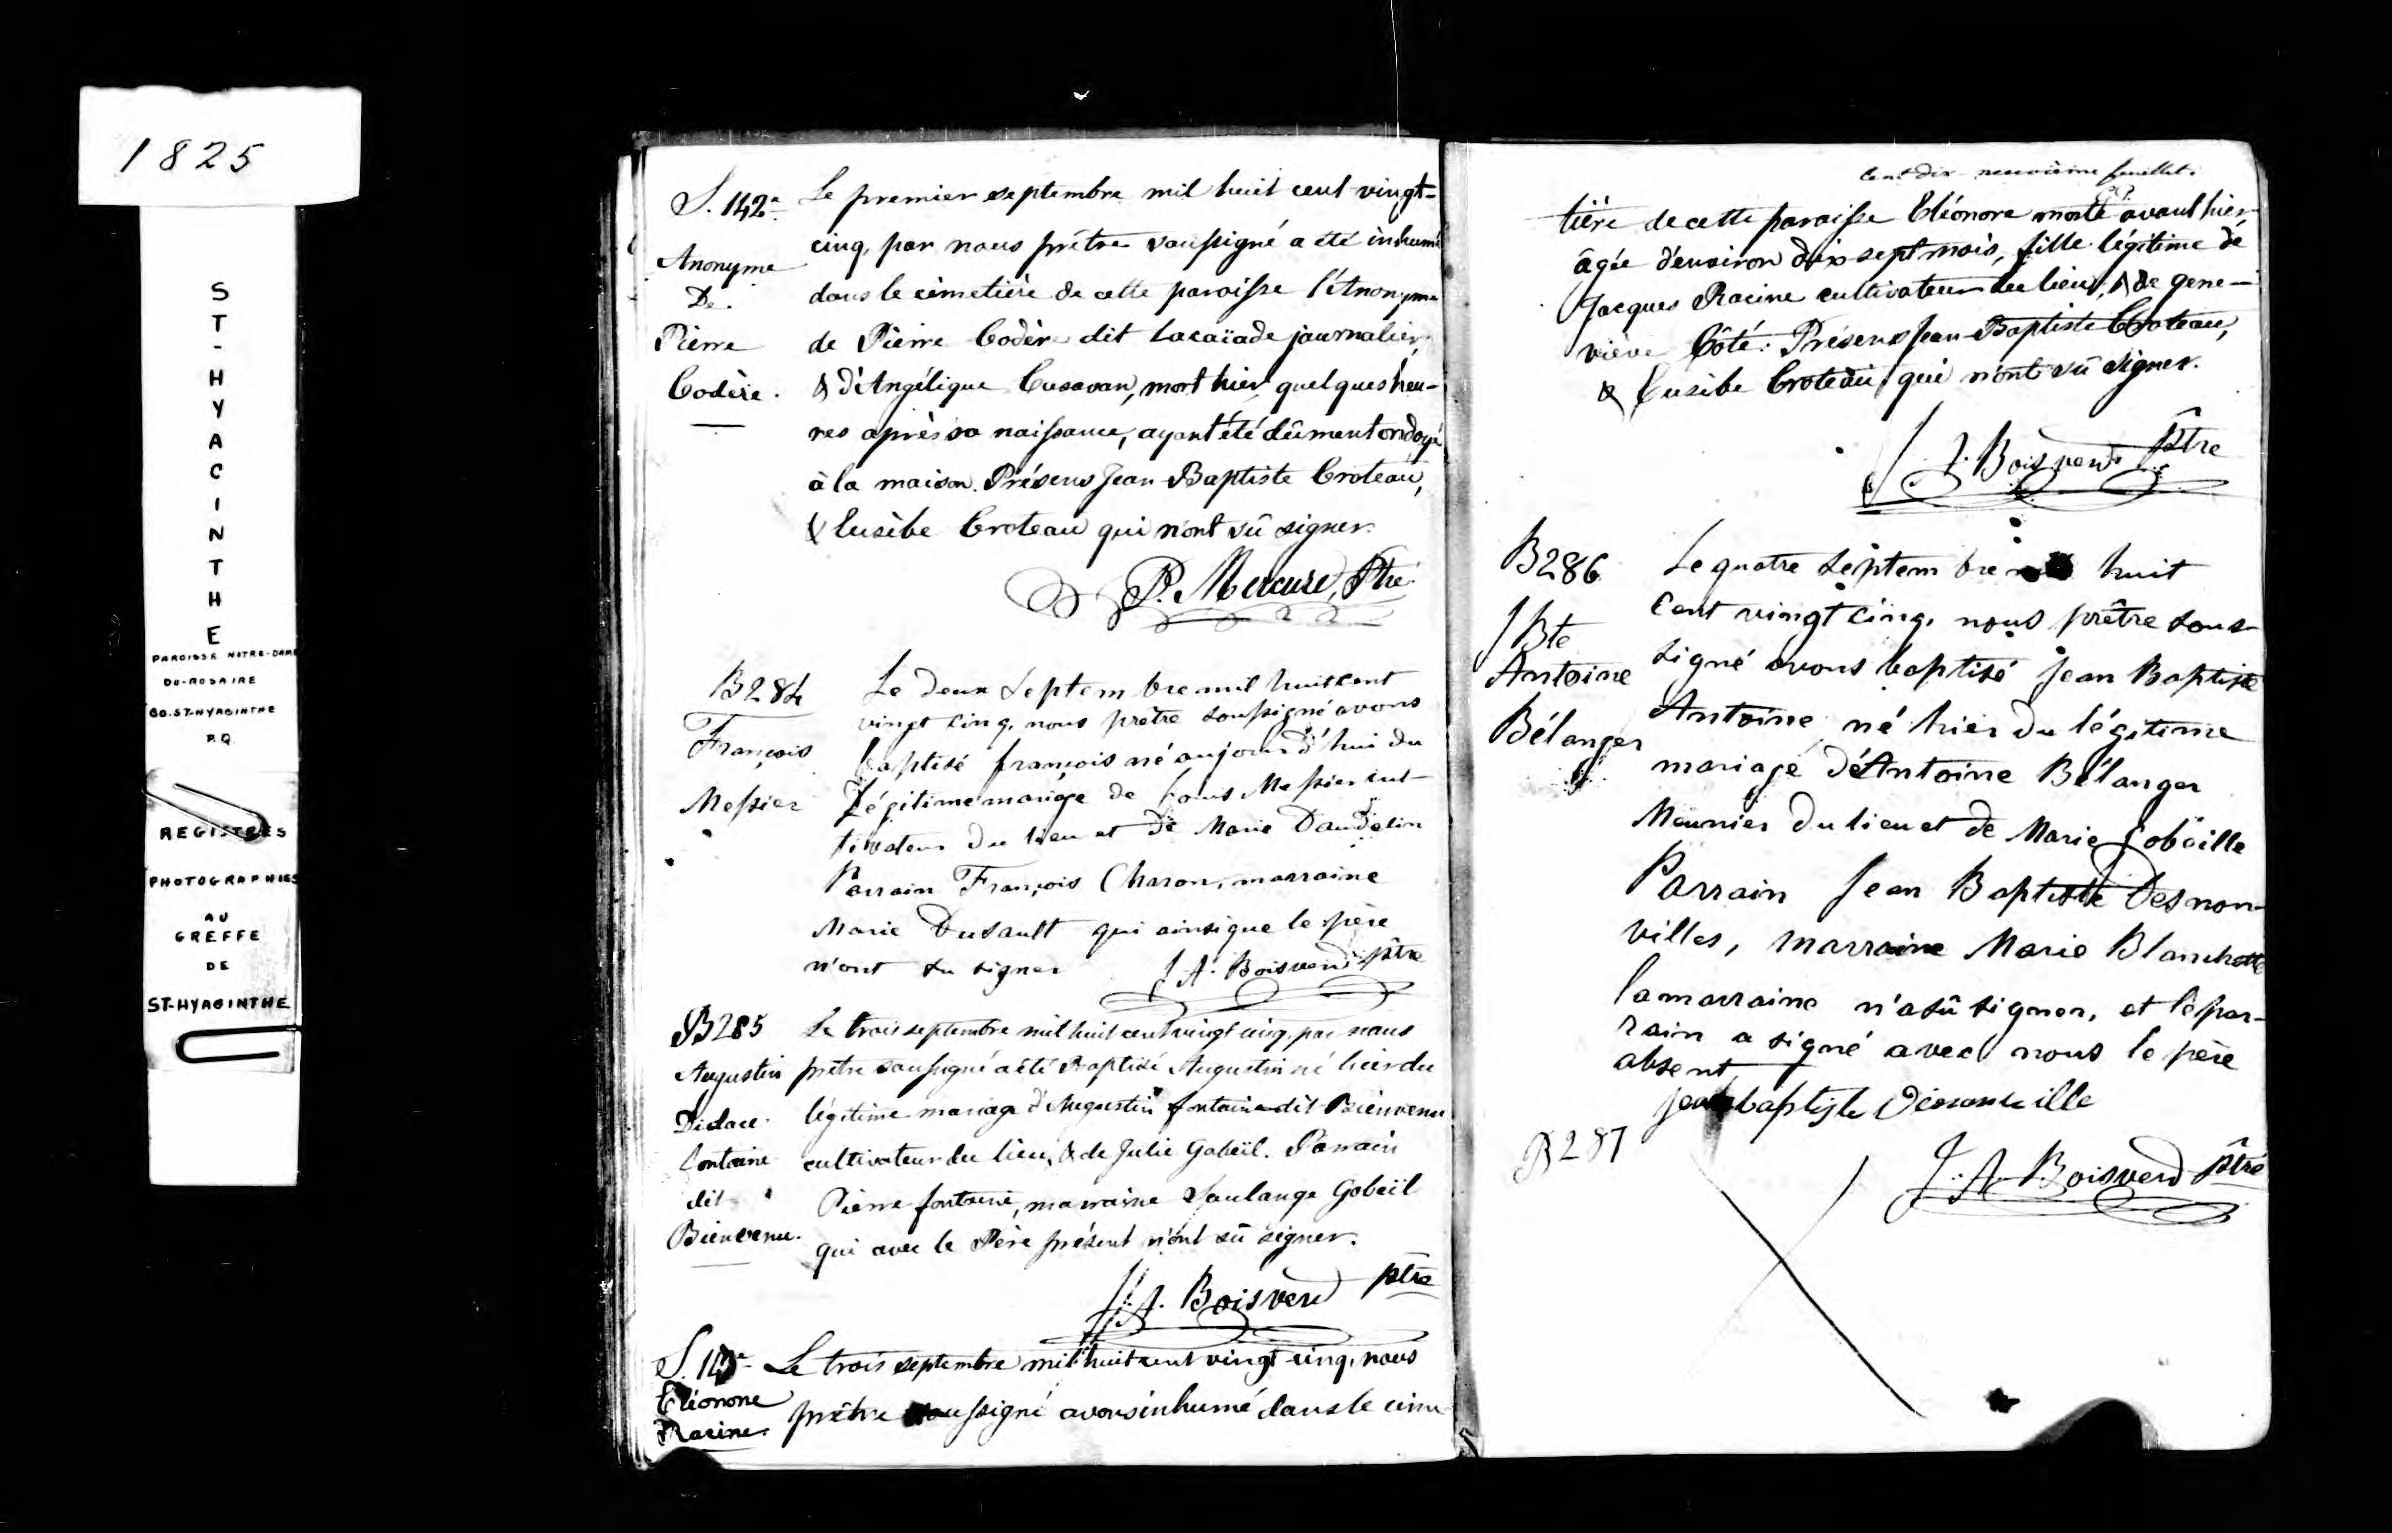 1825
ST-HYACINTHE
PAROISSE NOTRE-DAME
DU-ROSAIRE
CO. ST-HYACINTHE
P.Q.
REGISTRES
PHOTOGRAPHIES
AU
GREFFE
DE
ST-HYACINTHE
S. 142e
Anonyme
De
Pierre
Codère.
Le premier septembre mil huit cent vingt-
cinq, par nous prêtre soussigné a été inhumé
dans le cimetière de cette paroisse l'Anonyme
de Pierre Codère dit Lacaïade journalier,
& d'Angélique Casavan, mort hier quelques heu-
res après sa naissance, ayant été dûment ondoyé
à la maison. Présens Jean-Baptiste Croteau,
& Eusèbe Croteau qui n'ont sû signer.
P. Mercure, Ptre
B284
François
Messier
Le deux Septembre mil huit cent
vingt cinq, nous prêtre soussigné avons
baptisé françois né aujourd'hui du
Légitime mariage de Louis Messier cul-
tivateur du lieu et de Marie Daudelin
Parrain François Charon, marraine
Marie Dusault qui ainsi que le père
n'ont su signer J. A. Boisverd Ptre
B285
Augustin
Didace
fontaine
dit
Bienvenu.
Le trois septembre mil huit cent vingt cinq, par nous
prêtre soussigné a été Baptisé Augustin né hier du
légitime mariage d'Augustin fontaine dit Bienvenu
cultivateur du lieu, & de Julie Gobeïl. Parrain
Pierre fontaine, marraine Soulange Gobeïl
qui avec le Père présent n'ont sû signer.
J. A. Boisverd ptre
S.
Eléonore
Racine.
Le trois septembre mil huit cent vingt-cinq, nous
prêtre soussigné avons inhumé dans le cime
Cent dix-neuvième feuillet.
tière de cette paroisse Eléonore morte avant hier,
âgée d'environ dix sept mois, fille légitime de
Jacques Racine cultivateur du lieu, & de gene-
viève Côté. Présens Jean-Baptiste Croteau,
& Eusèbe Croteau, qui n'ont sû signer.
J. A. Boisverd Ptre
B286
J Bte
Antoine
Bélanger
Le quatre Septembre mil huit
Cent vingt cinq, nous prêtre sous-
signé avons baptisé Jean Baptiste
Antoine né hier du légitime
mariage d'Antoine Bélanger
Meunier du lieu et de Marie Gobeille
Parrain Jean Baptiste Desnon-
villes, marraine Marie Blanchette
la marraine n'a sû signer, et le par-
rain a signé avec nous le père
absent
jean baptiste
J. A. Boisverd Ptre
B287